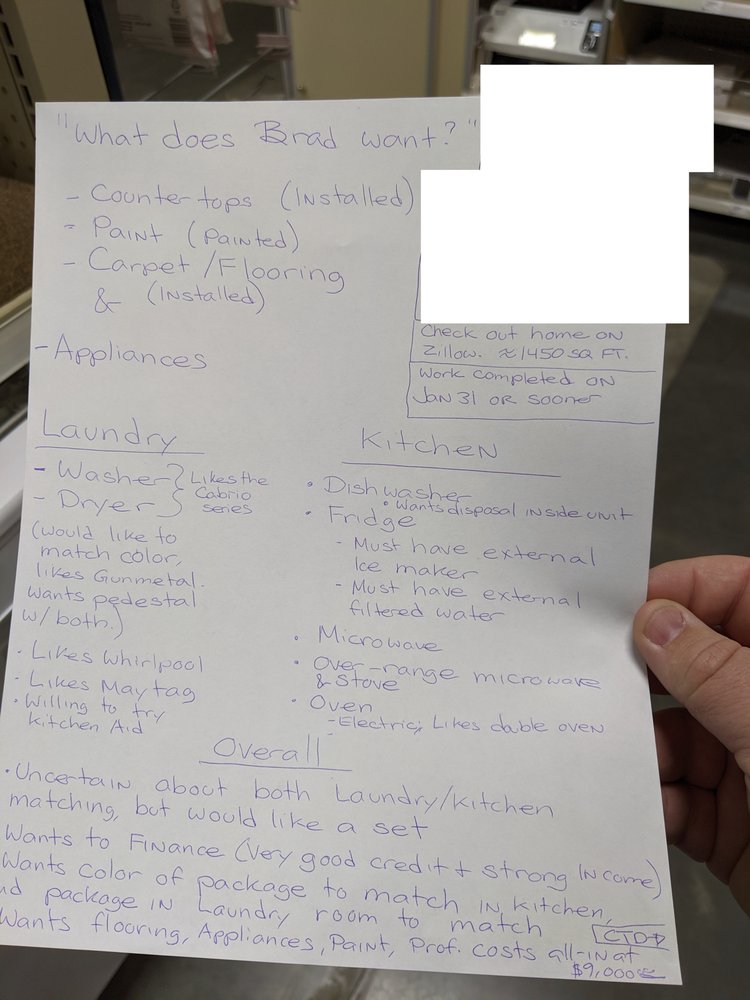 "What does Brad want?"
- Countertops (Installed)
- Paint (Painted)
- Carpet/Flooring
& (Installed)
Check out home on
Zillow. ≈1450 SQ FT.
Work completed on
Jan 31 or sooner
- Appliances
Laundry
- Washer } Likes the
- Dryer } Cabrio
series
(would like to
match color,
likes Gunmetal.
Wants pedestal
w/both.)
• Likes Whirlpool
• Likes Maytag
• Willing to try
Kitchen Aid
Kitchen
• Dishwasher
• Wants disposal inside unit
• Fridge
- Must have external
Ice maker
- Must have external
filtered water
• Microwave
• Over-range microwave
& Stove
• Oven
- Electric; Likes double oven
Overall
• Uncertain about both Laundry/Kitchen
matching, but would like a set
Wants to Finance (Very good credit + strong Income)
Wants color of package to match in kitchen,
package in Laundry room to match
Wants flooring, Appliances, Paint, Prof. costs all-in at
$9,000